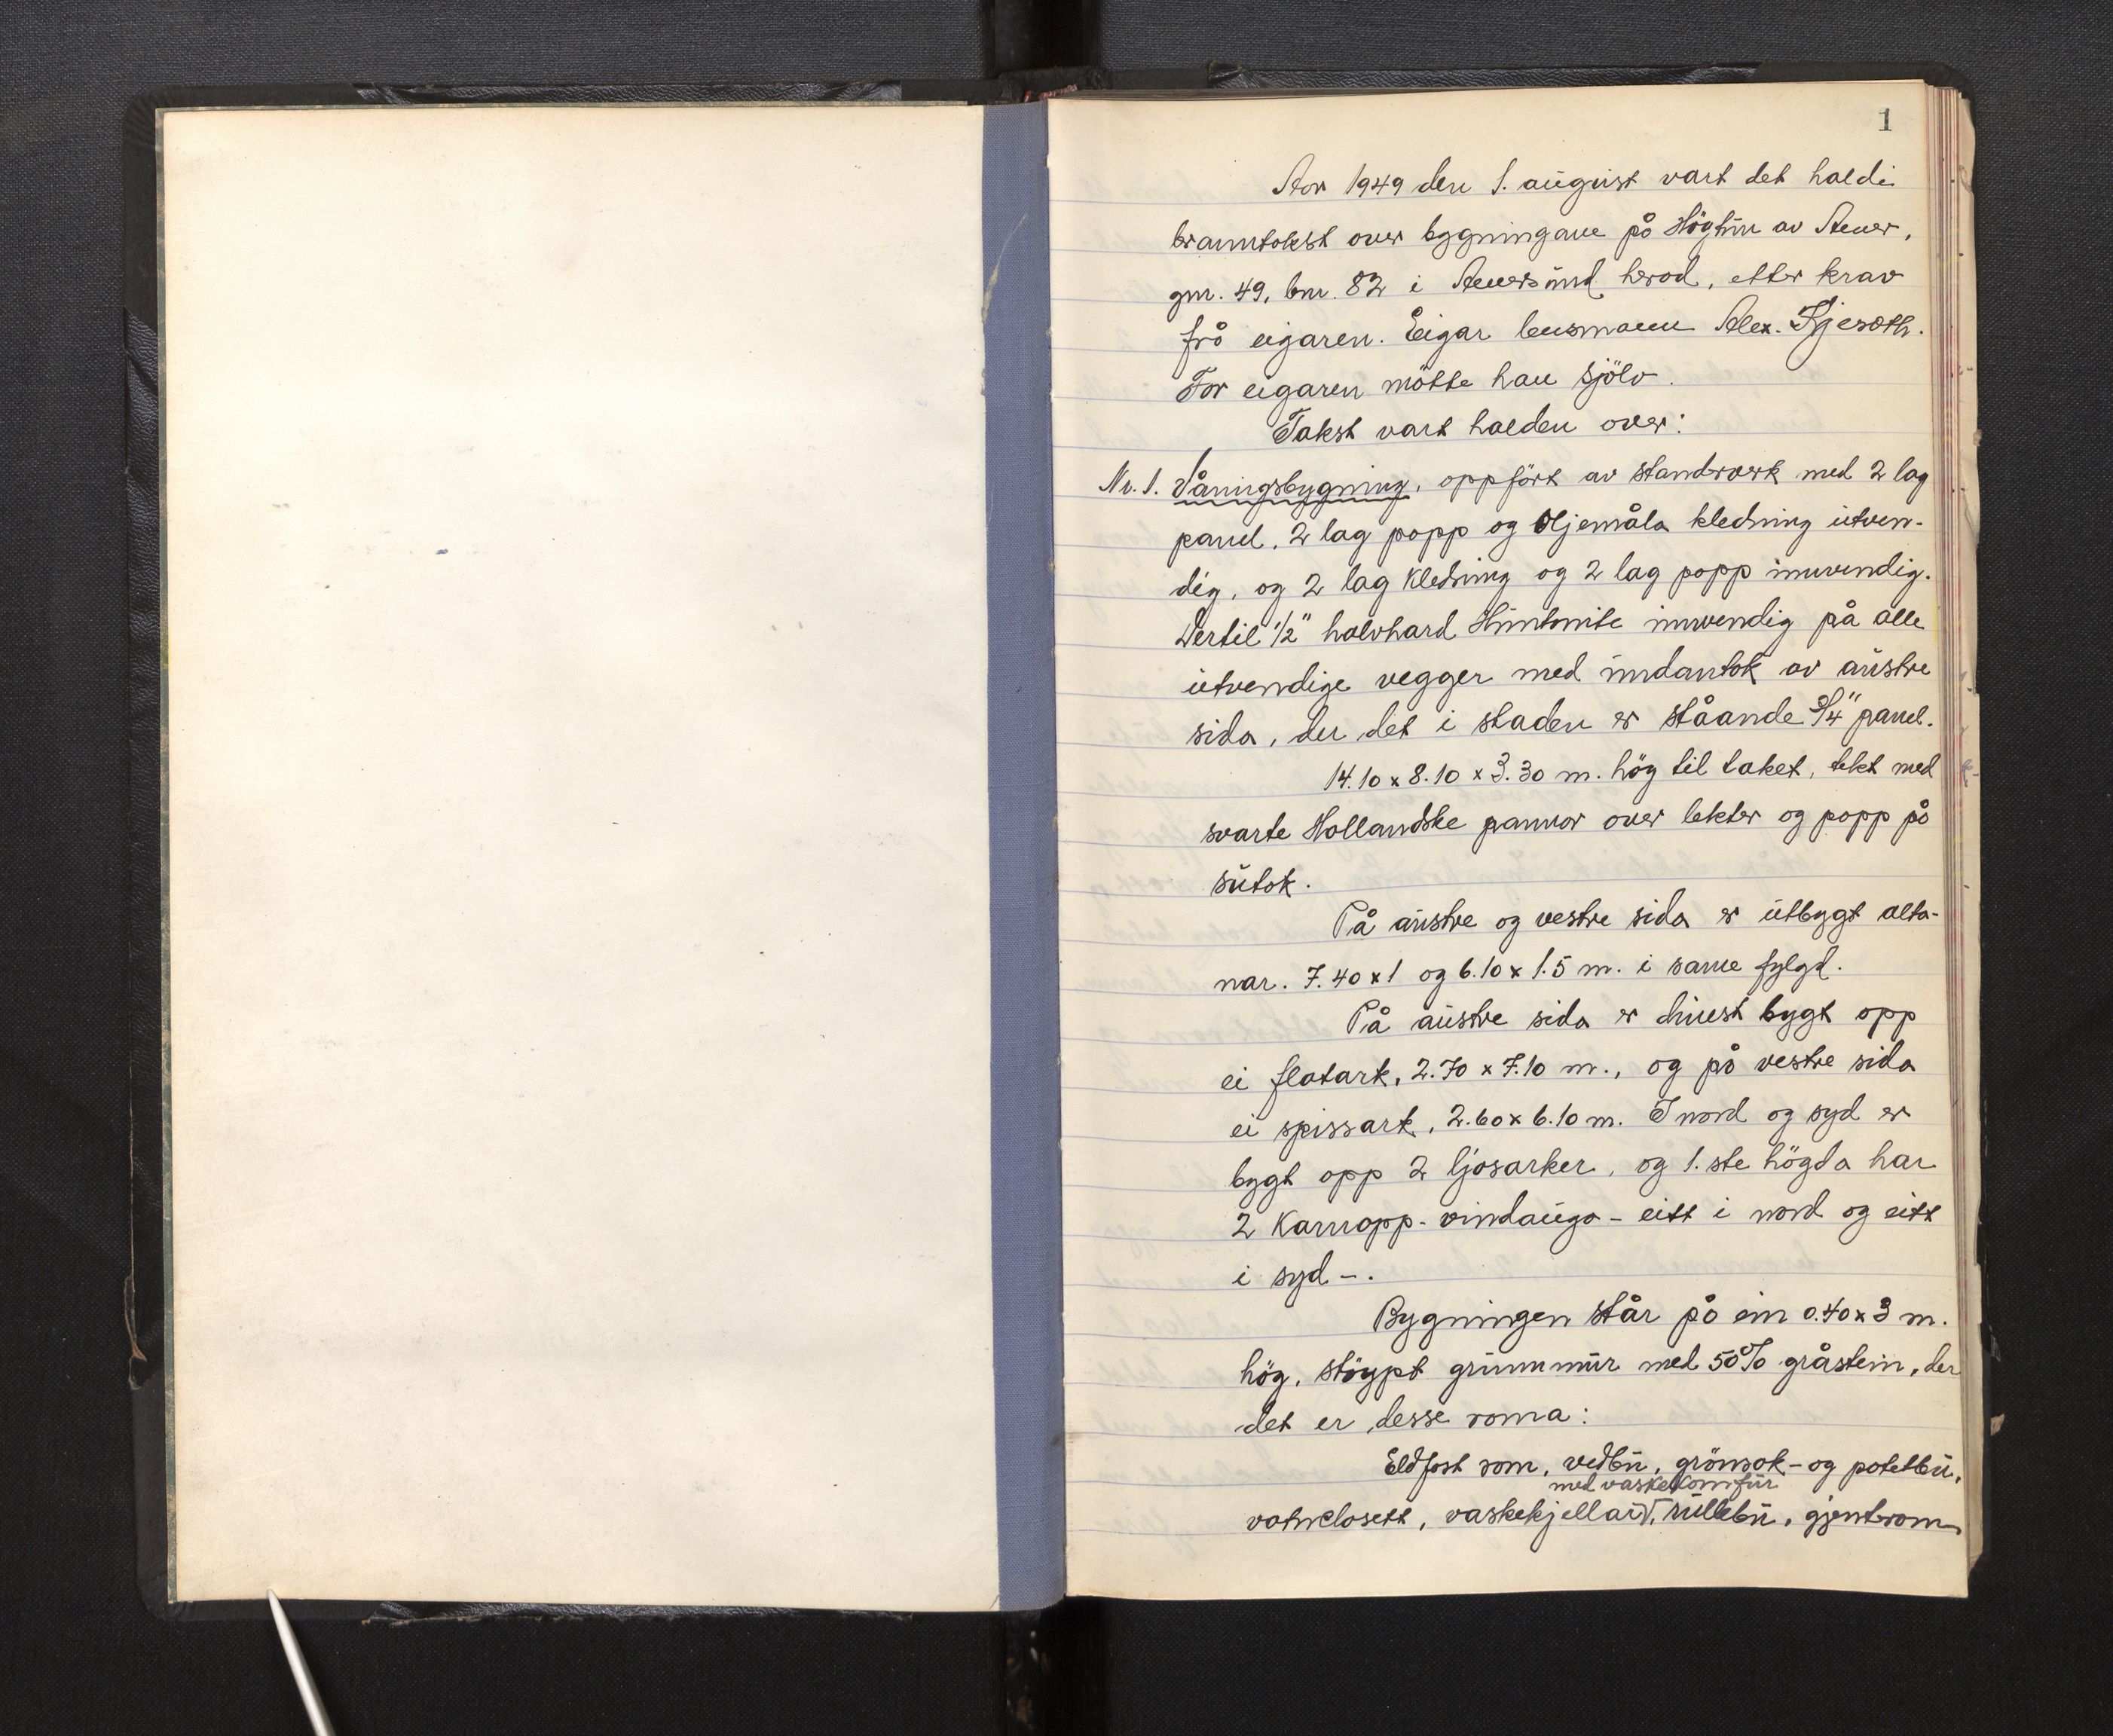 1
Aar 1949 den 1. august vart det haldi
branntakst over bygningane på Högtun av
gnr. 49, bnr. 82 i herad, etter krav
frå eigaren. Eigar lensmann Alex.
For eigaren mötte han sjölv.
Takst vart halden over:
Nr. 1. Våningsbygning, oppfört av standverk med 2 lag
panel, 2 lag papp og oljemåla kledning utven-
dig, og 2 lag kledning og 2 lag papp innvendig.
Dertil 1/2" halvhard Huntonite innvendig på alle
utvendige vegger med undantak av austre
sida, der det i staden er ståande 3/4" panel.
14.10 x 8.10 x 3.30 m. hög til taket, tekt med
svarte Hollandske pannor over lekter og papp på
sutak.
På austre og vestre sida er utbygt alta-
nar. 7.40 x 1 og 6.10 x 1.5 m. i same fylgd.
På austre sida er dinest bygt opp
ei flatark, 2.70 x 7.10 m., og på vestre sida
ei spissark, 2.60 x 6.10 m. I nord og syd er
bygt opp 2 ljosarker, og 1. ste högda har
2 Karnapp-vindauga - eitt i nord og eitt
i syd -.
Bygningen står på ein 0.40 x 3 m.
hög, stöypt grunnmur med 50% gråstein, der
det er desse roma:
Eldfast rom, vedbu, grönsak- og potetbu,
med vaskekomfur
vatnclosett, vaskekjellar, rullebu, gjenterom